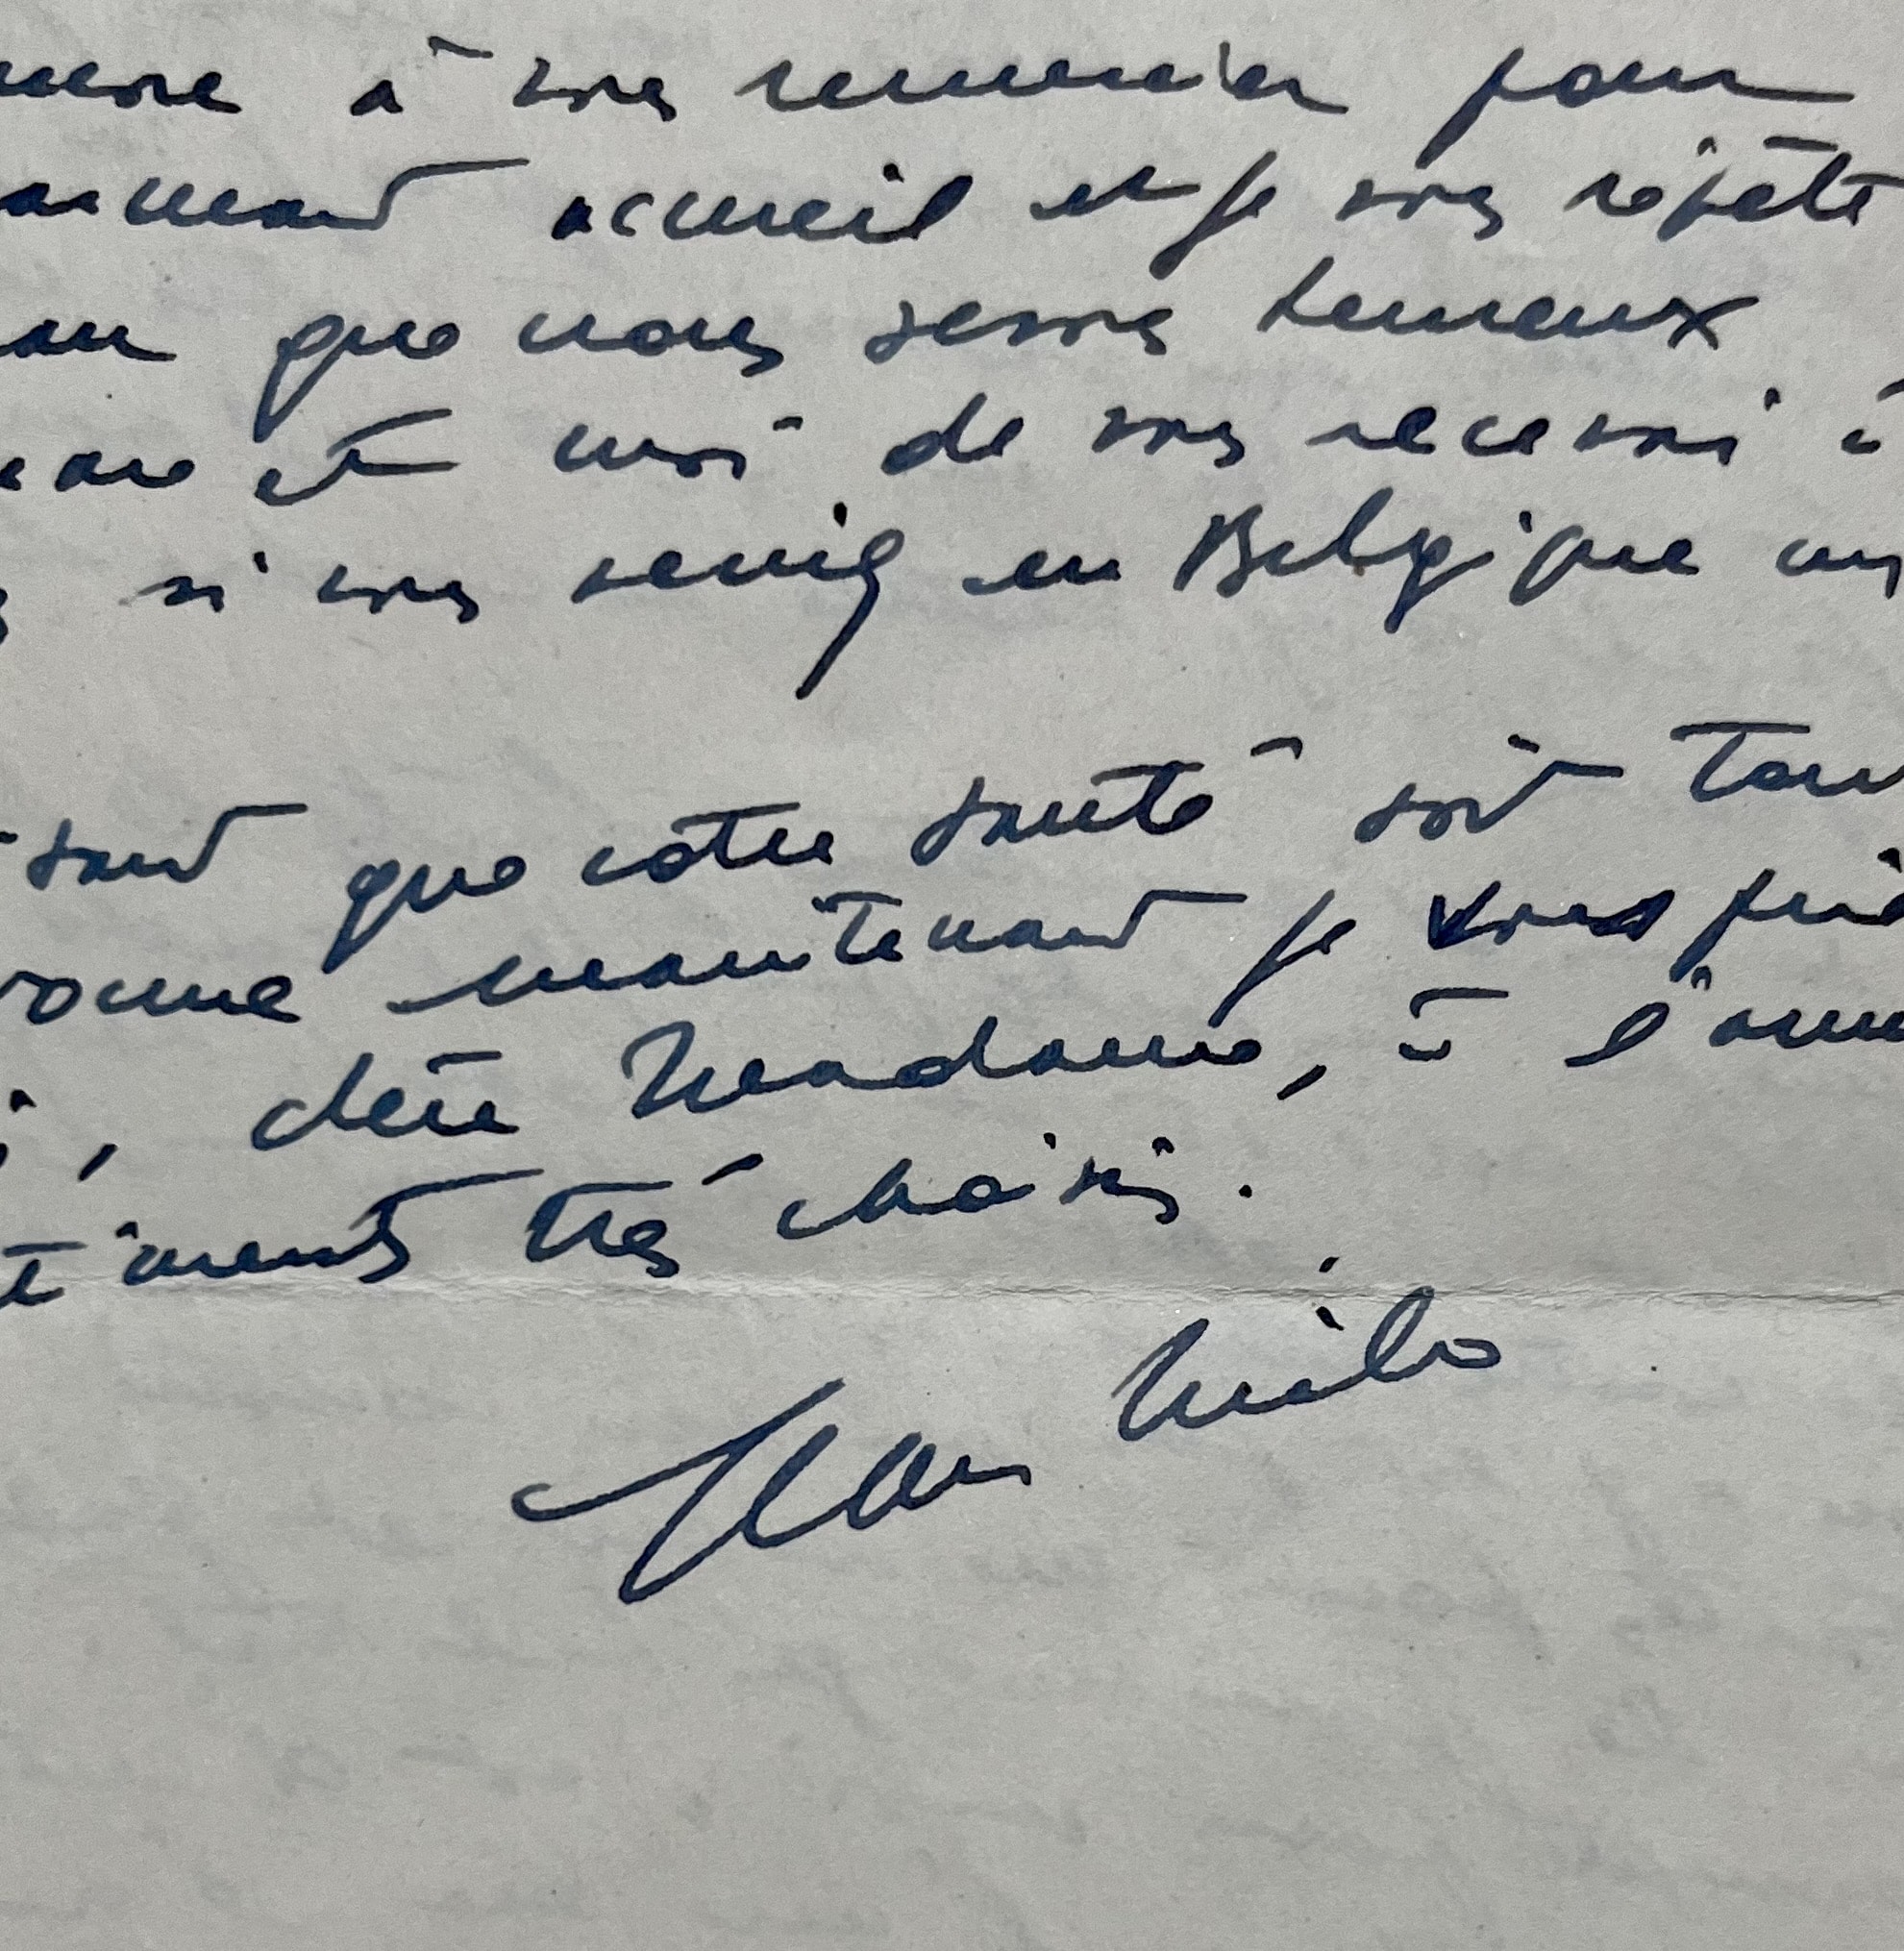 à vous remercier pour
accueil et je vous répète
que nous serons heureux
et moi de vous recevoir à
si vous veniez en Belgique un
que votre santé soit tout
maintenant je vous prie
, chère Madame, à l'assu
timents très choisis.
Jean Milo